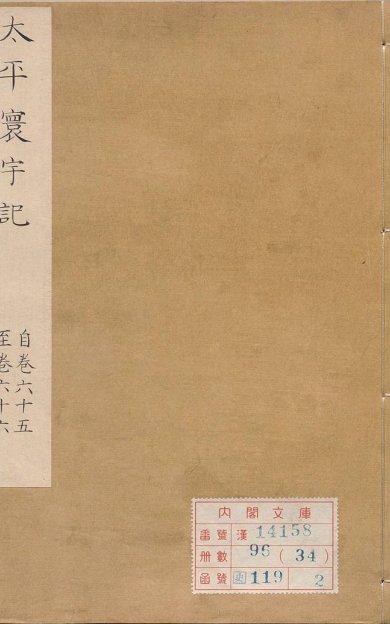 太平寰宇記
自卷六十五
至卷六十六
內閣文庫
番號 漢 14158
冊數 96 (34)
函號 119 2